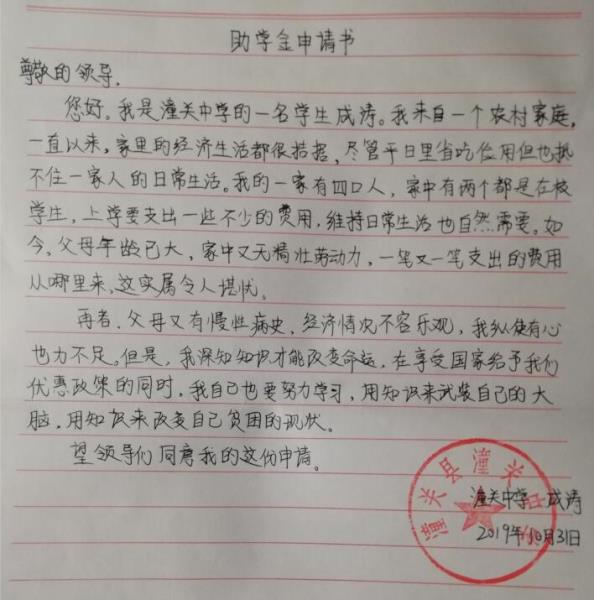 助学金申请书
尊敬的领导.
您好。我是潼关中学的一名学生成涛。我来自一个农村家庭,
一直以来,家里的经济生活都很拮据,尽管平日里省吃俭用但也抵
不住一家人的日常生活。我的一家有四口人,家中有两个都是在校
学生,上学要支出一些不少的费用,维持日常生活也自然需要。如
今,父母年龄已大,家中又无精壮劳动力,一笔又一笔支出的费用
从哪里来,这实属令人堪忧。
再者,父母又有慢性病史,经济情况不容乐观,我纵使有心
也力不足。但是,我深知知识才能改变命运,在享受国家给予我们
优惠政策的同时,我自己也要努力学习,用知识来武装自己的大
脑,用知识来改变自己贫困的现状。
望领导们同意我的这份申请。
潼关县潼关
潼关中学 成涛
2019年10月31日